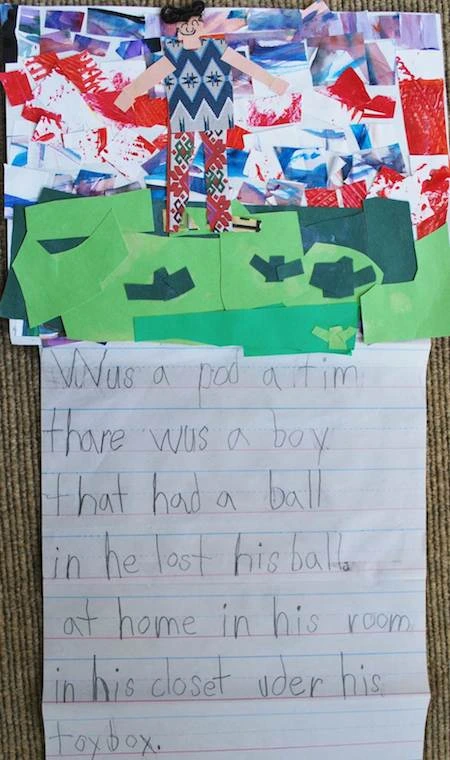 Wus a pod a tim
thare wus a boy
that had a ball
in he lost his ball
at home in his room
in his closet uder his
toybox.